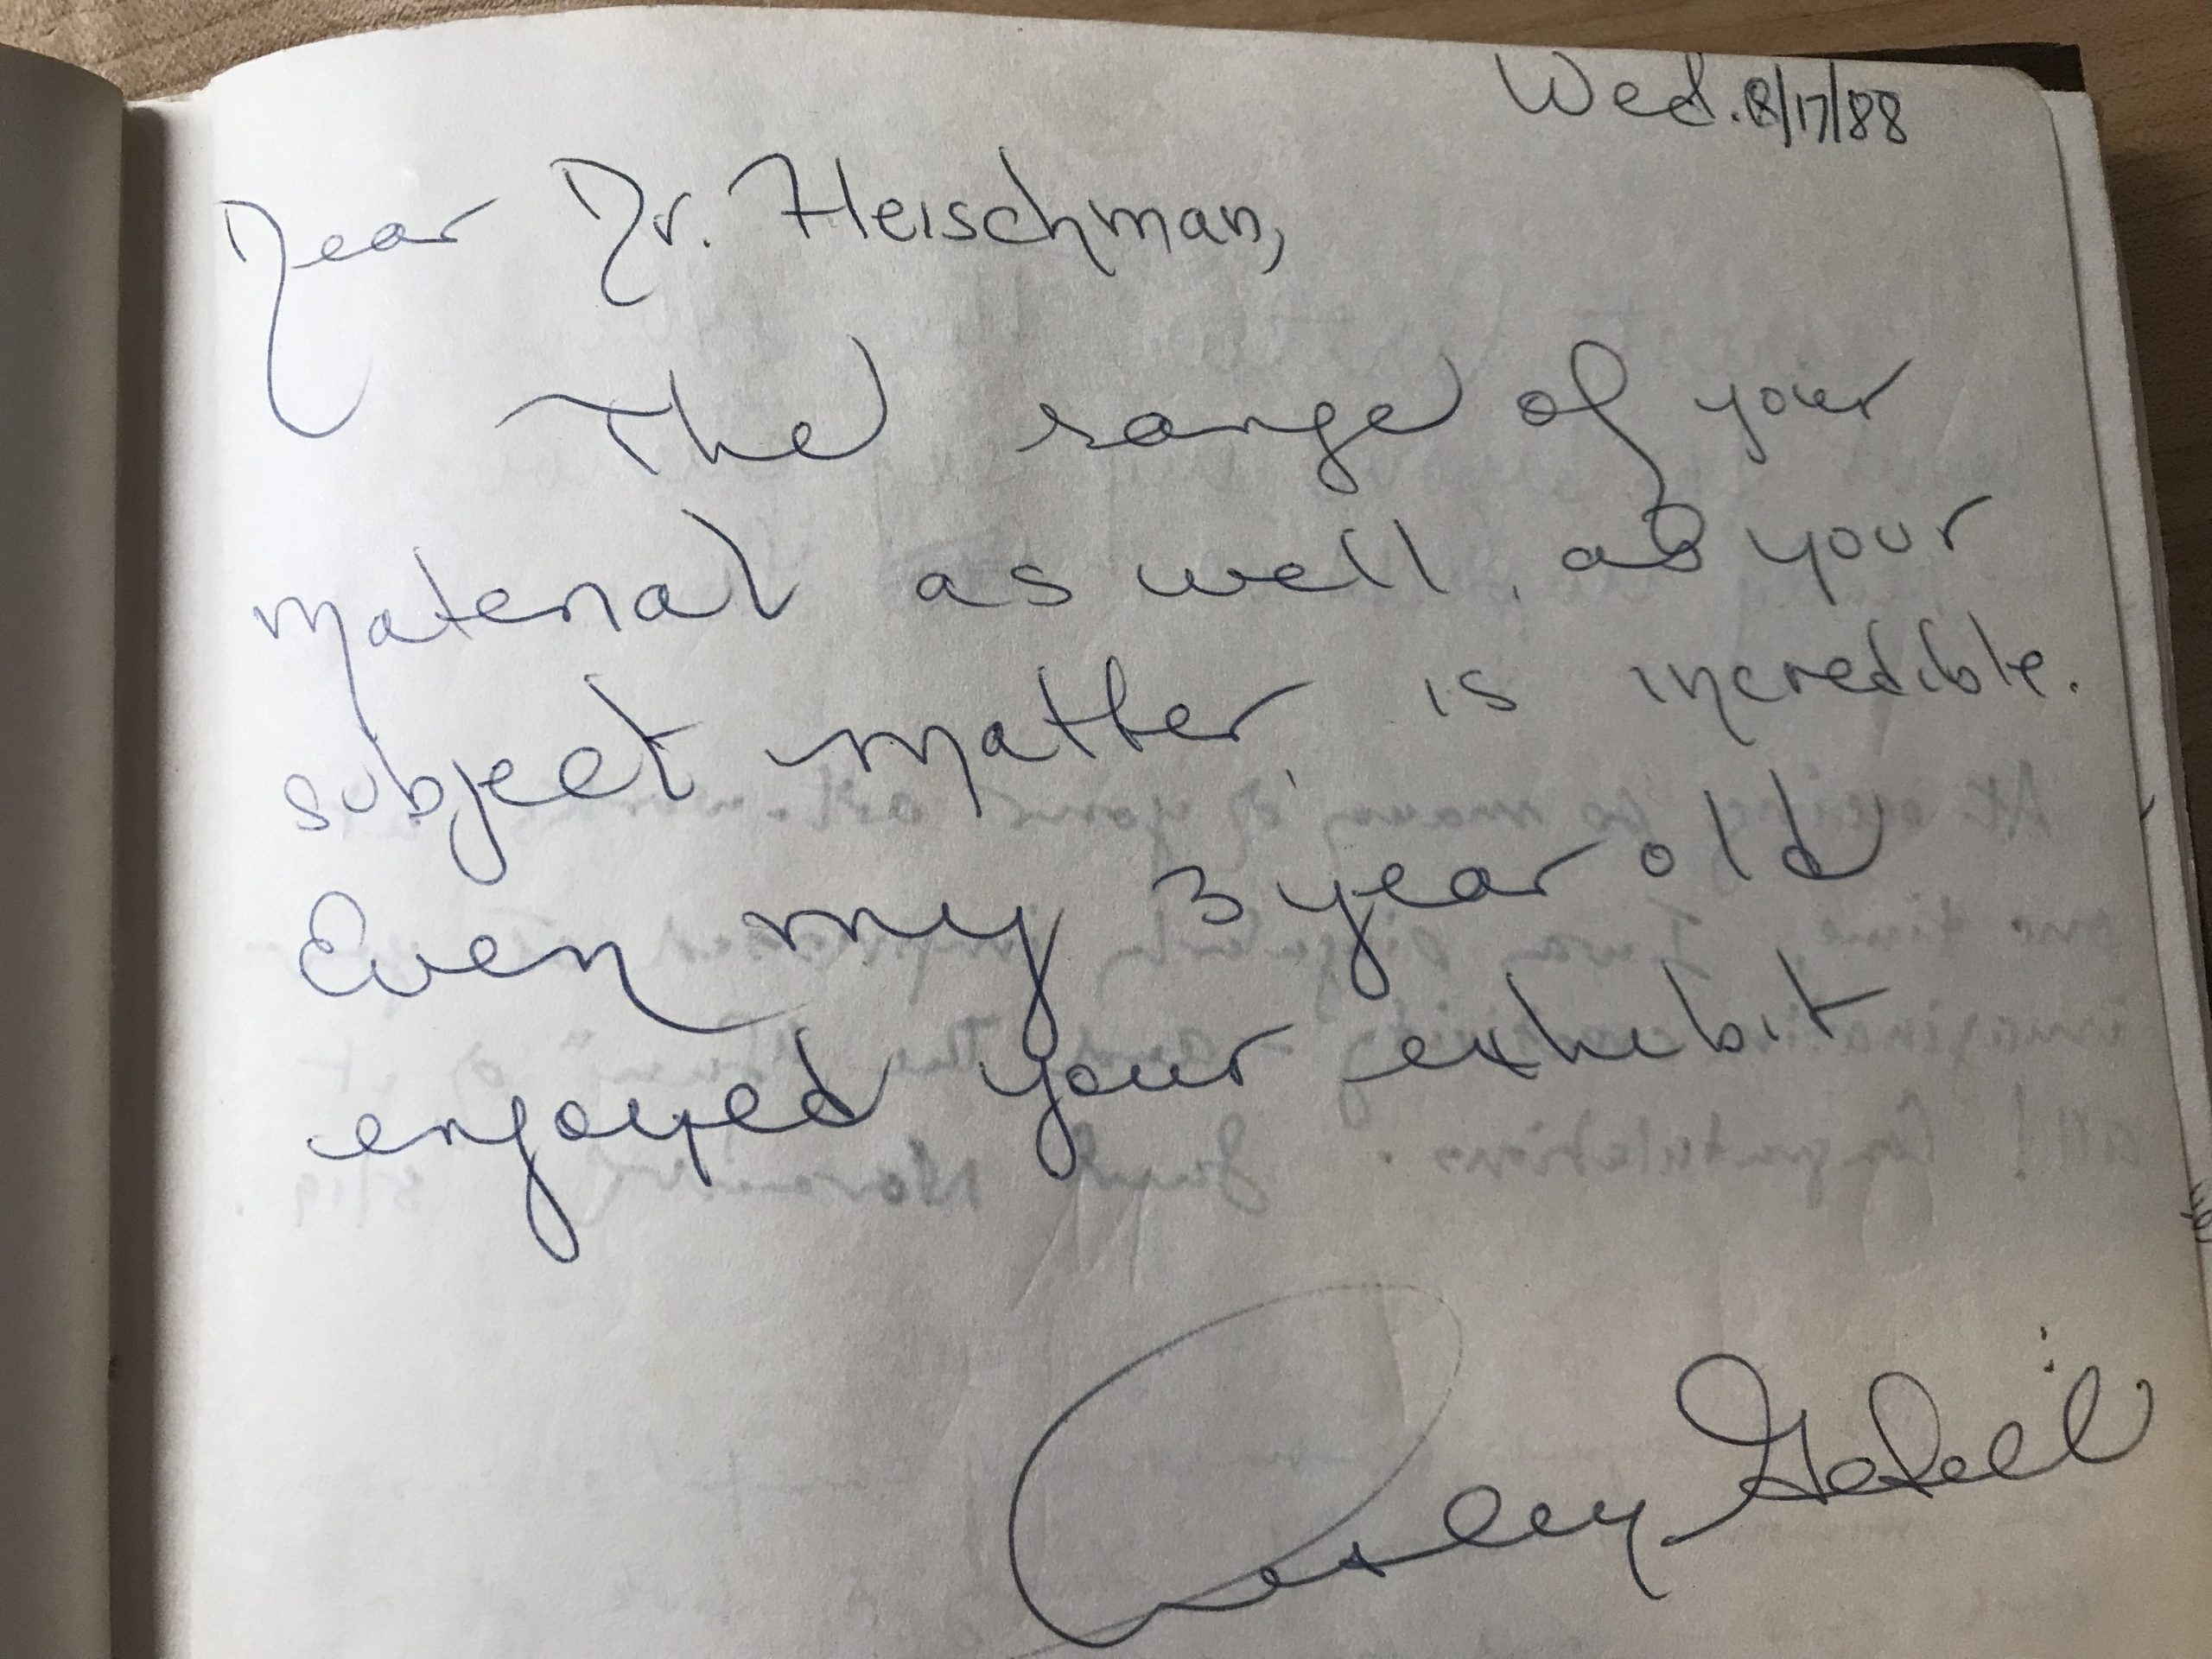 Wed. 8/17/88
Dear Dr. Fleischman,
The range of your
material as well, as your
subject matter, is incredible.
Even my 3 year old
enjoyed your exhibit